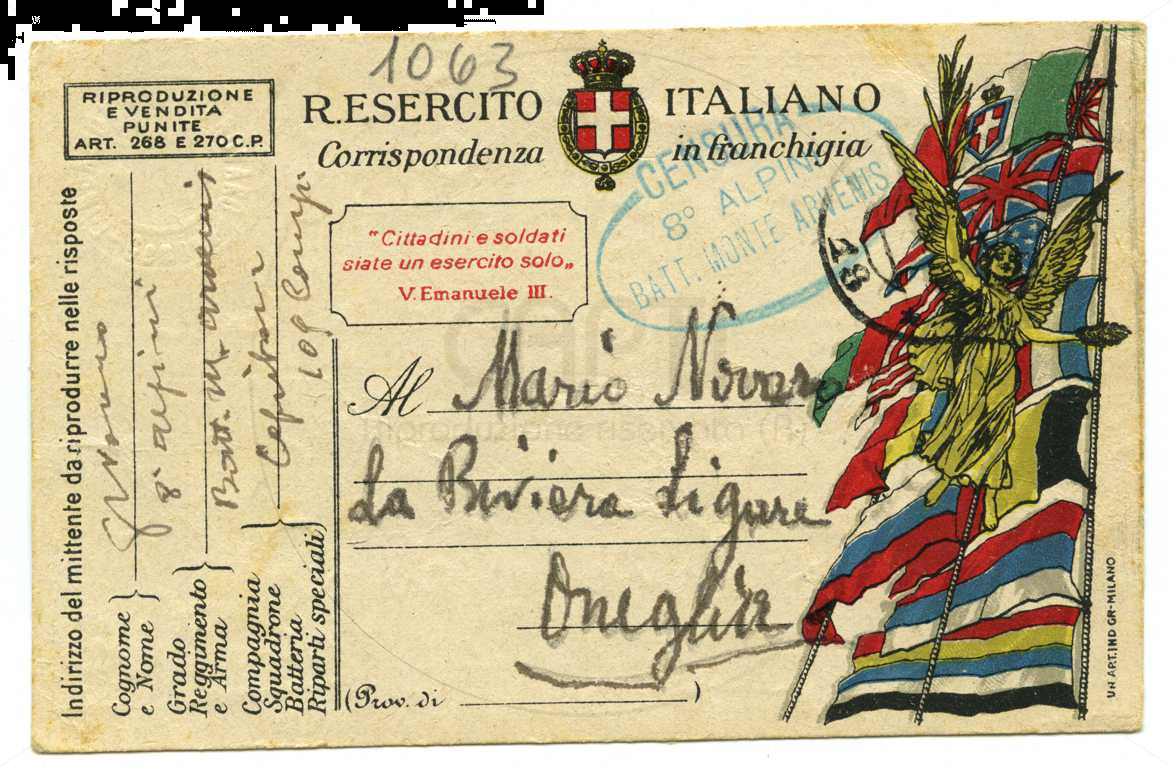 1063
RIPRODUZIONE
E VENDITA
PUNITE
ART. 268 E 270 C.P.
R. ESERCITO ITALIANO
Corrispondenza in franchigia
CENSURA
8° ALPINI
BATT. MONTE ARVENIS
"Cittadini e soldati
siate un esercito solo„
V. Emanuele III.
Al Mario Novaro
La Riviera Ligure
Oneglia
(Prov. di )
Indirizzo del mittente da riprodurre nelle risposte
Cognome
e Nome
Novaro
Grado
8° alpini
Reggimento
e Arma
Batt. M. Arvenis
Compagnia
Squadrone
Batteria
Riparti speciali
109 Comp.
UN. ART. IND GR-MILANO